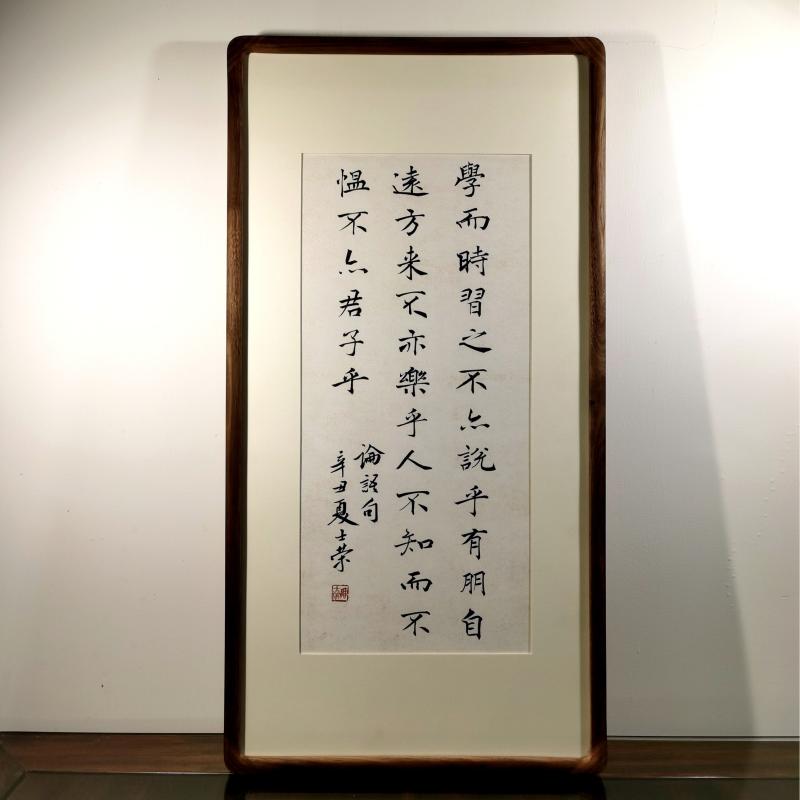 學而時習之不亦說乎有朋自
遠方来不亦樂乎人不知而不
愠不亦君子乎
論語句
辛丑夏士荣